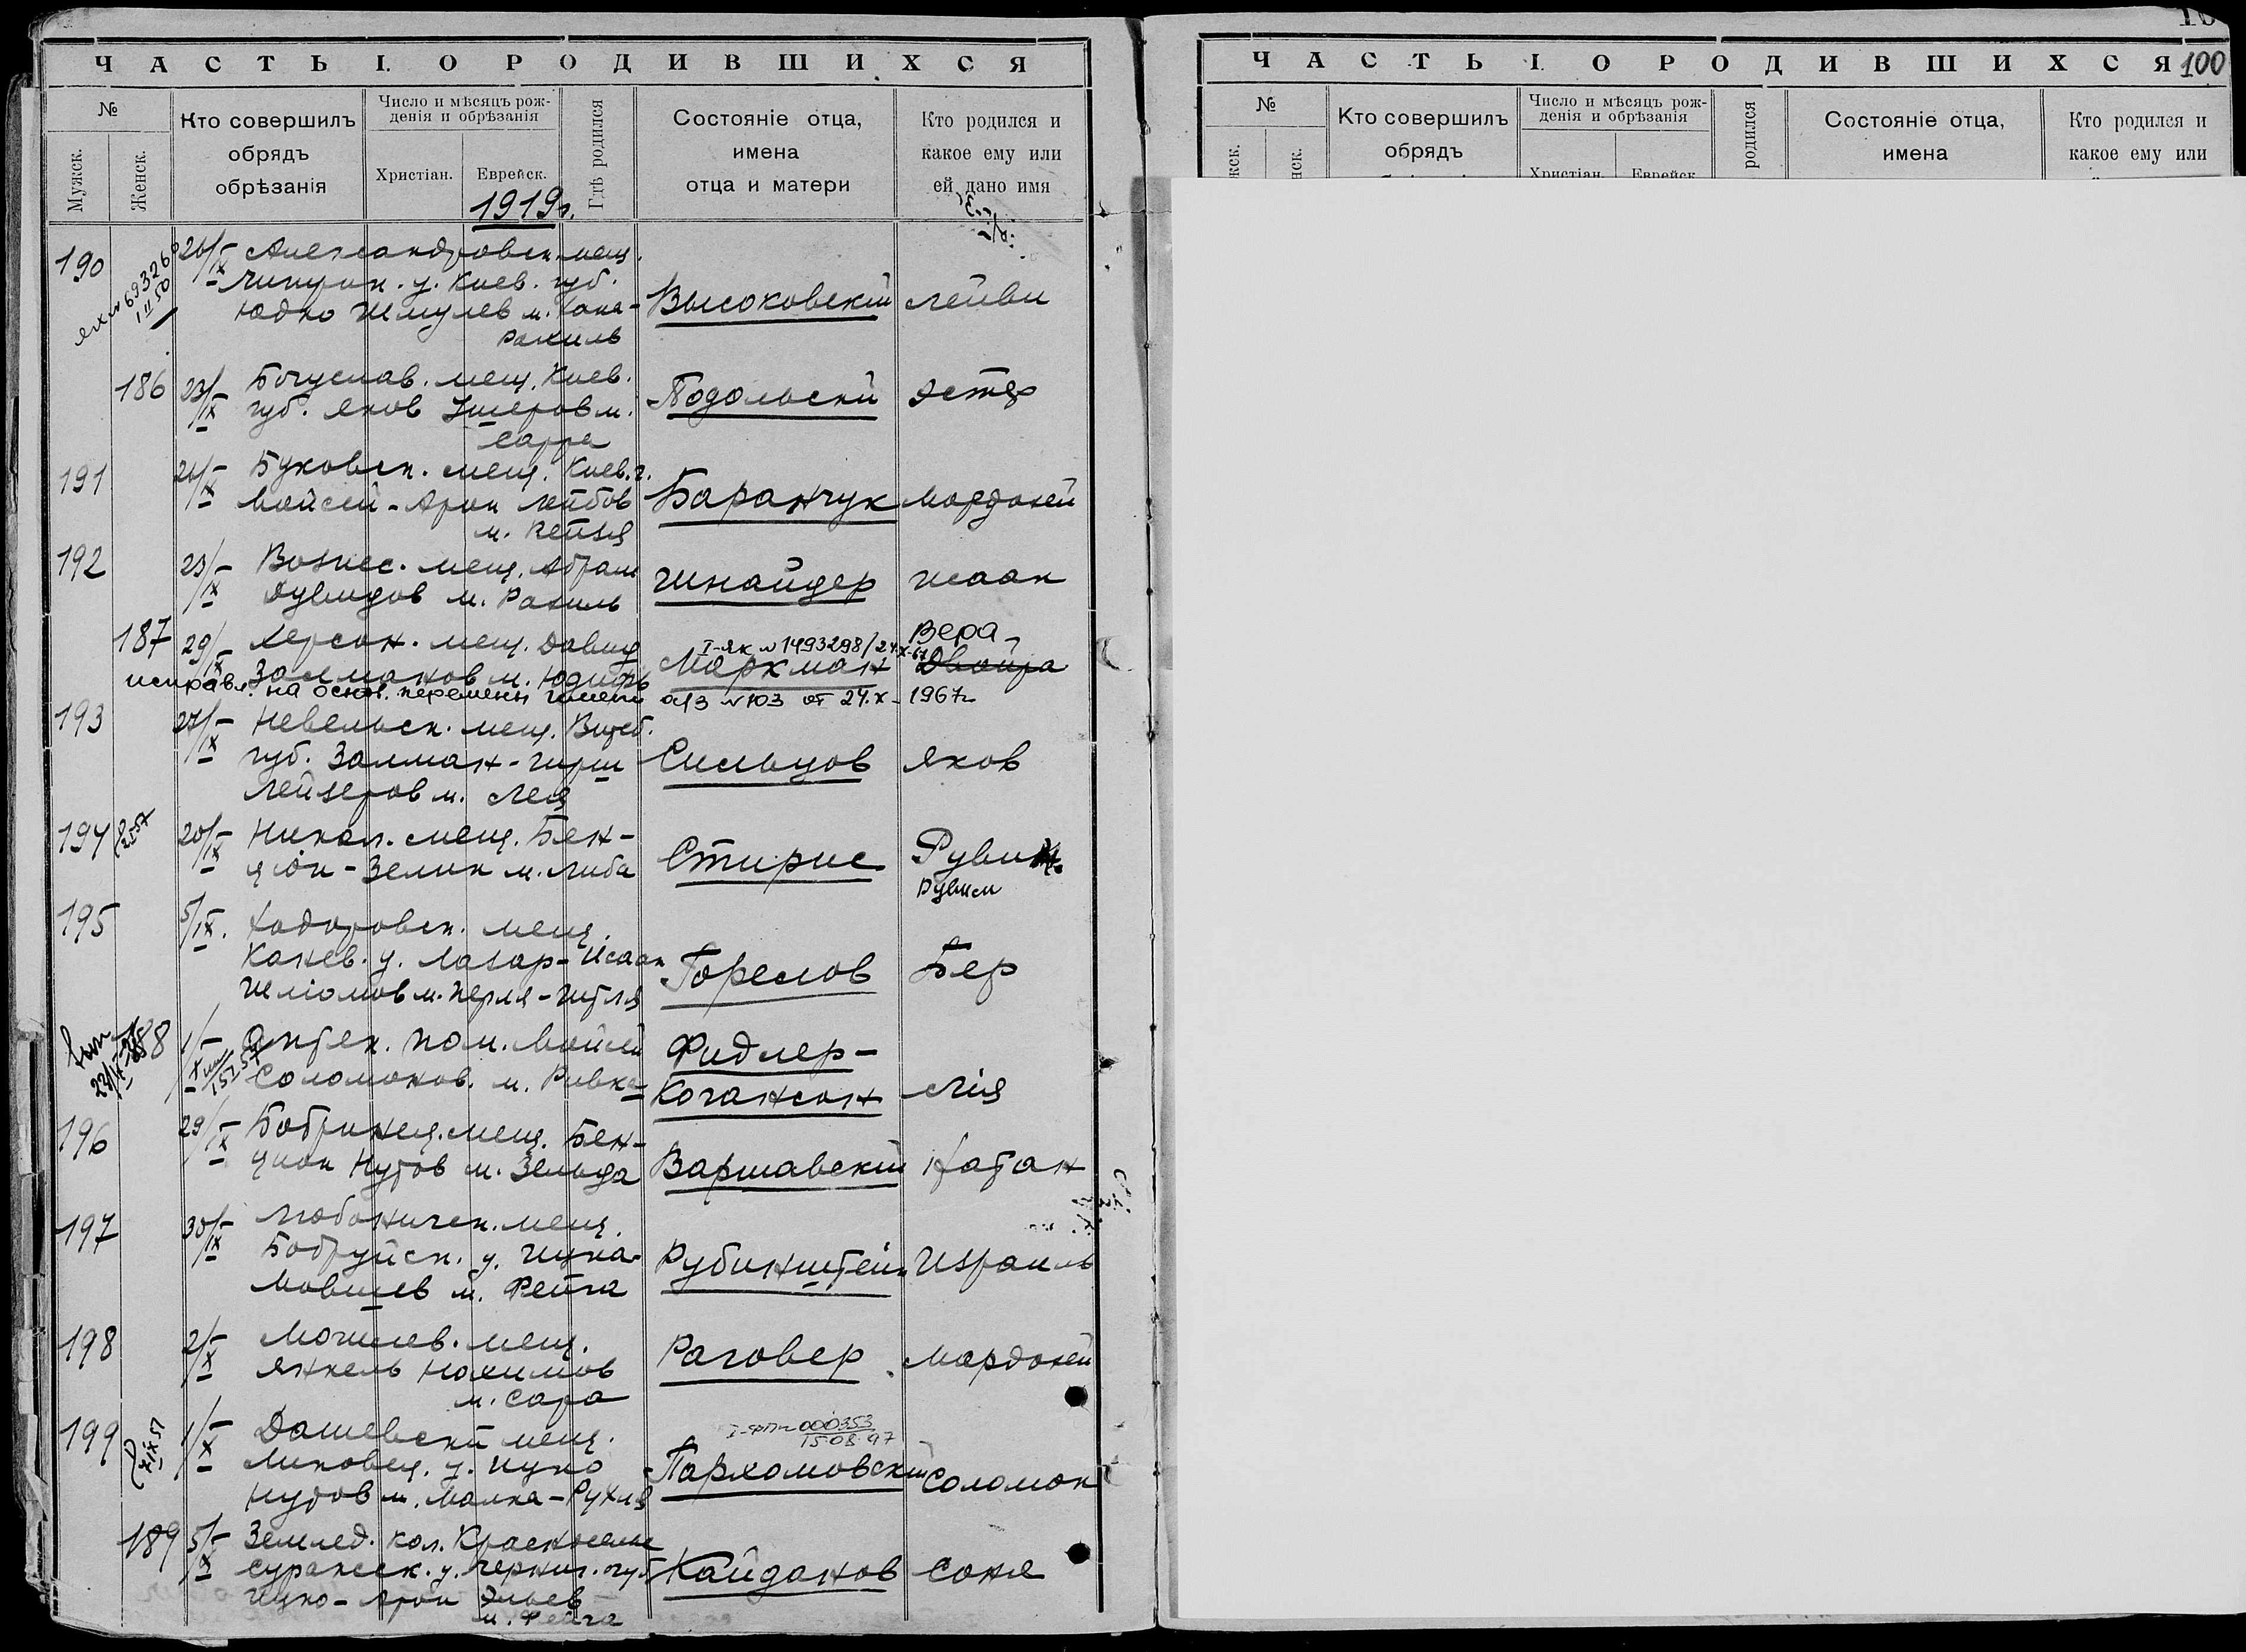 ЧАСТЬ I. О РОДИВШИХСЯ
№
Мужск.
Женск.
Кто совершилъ обрядъ обрѣзанія
Число и мѣсяцъ рожденія и обрѣзанія
Христіан.
Еврейск.
Гдѣ родился
Состояніе отца, имена отца и матери
Кто родился и какое ему или ей дано имя
1919г.
190
693260
1 II 50
Александровск. мещ.
Чигирин. у. Киев. губ.
Юдко Шмулев м. Хана-
Рахиль
Высоковский Лейви
186 23/IX Богуслав. мещ. Киев.
губ. Яков Ушеров м.
Сарра
Подольский Эстер
191 Буковск. мещ. Киев. г.
Мойсей-Арон Лейбов
м. Рейзя
Баранчук Мордохей
192 23/IX Вознес. мещ. Абрам
Дувидов м. Рахиль
Шнайдер Исаак
187 29/IX Херсон. мещ. Давид
Залманов м. Юдифь
I-ЯК N 1493298/24.X-67
Маркман
Вера
Двойра
исправл. на основ. перемены имени а/з N 103 от 24.X-1967г
193 27/IX Невельск. мещ. Витеб.
губ. Залман-Гирш
Лейзеров м. Лея
Сильцов Яков
194 20/IX Никол. мещ. Бен-
цион-Зелик м. Либа
Стирис Рувин
Рувим
195 5/IX. Ходоровск. мещ.
Канев. у. Лазар-Исаак
Шліомов м. Перля-Гитля
Горелов Бер
188 1/X Аптек. пом. Мойсей
Соломонов. м. Ривка
Фидлер-
Когансон Лія
196 29/IX Бобринец. мещ. Бен-
цион Нутов м. Зельда
Варшавский Натан
197 30/IX Любоничск. мещ.
Бобруйск. у. Ицка-
Мовшев м. Фейга
Рубинштейн Израиль
198 2/X Могилев. мещ.
Янкель Нохимов
м. Сара
Раговер Мордохей
199 7 IX 51
1/X Дашевский мещ.
Липовец. у. Ицко
Нутов м. Малка-Рухля
000353
15.08.97
Пархомовский Соломон
189 5/X Землед. кол.
Суражск. у. Черниг. губ.
Ицко-Арон Эльев
м. Фейга
Кайданов Соня
100
ЧАСТЬ I. О РОДИВШИХСЯ
№
Кто совершилъ обрядъ
Число и мѣсяцъ рожденія и обрѣзанія
Христіан.
Еврейск.
родился
Состояніе отца, имена
Кто родился и какое ему или